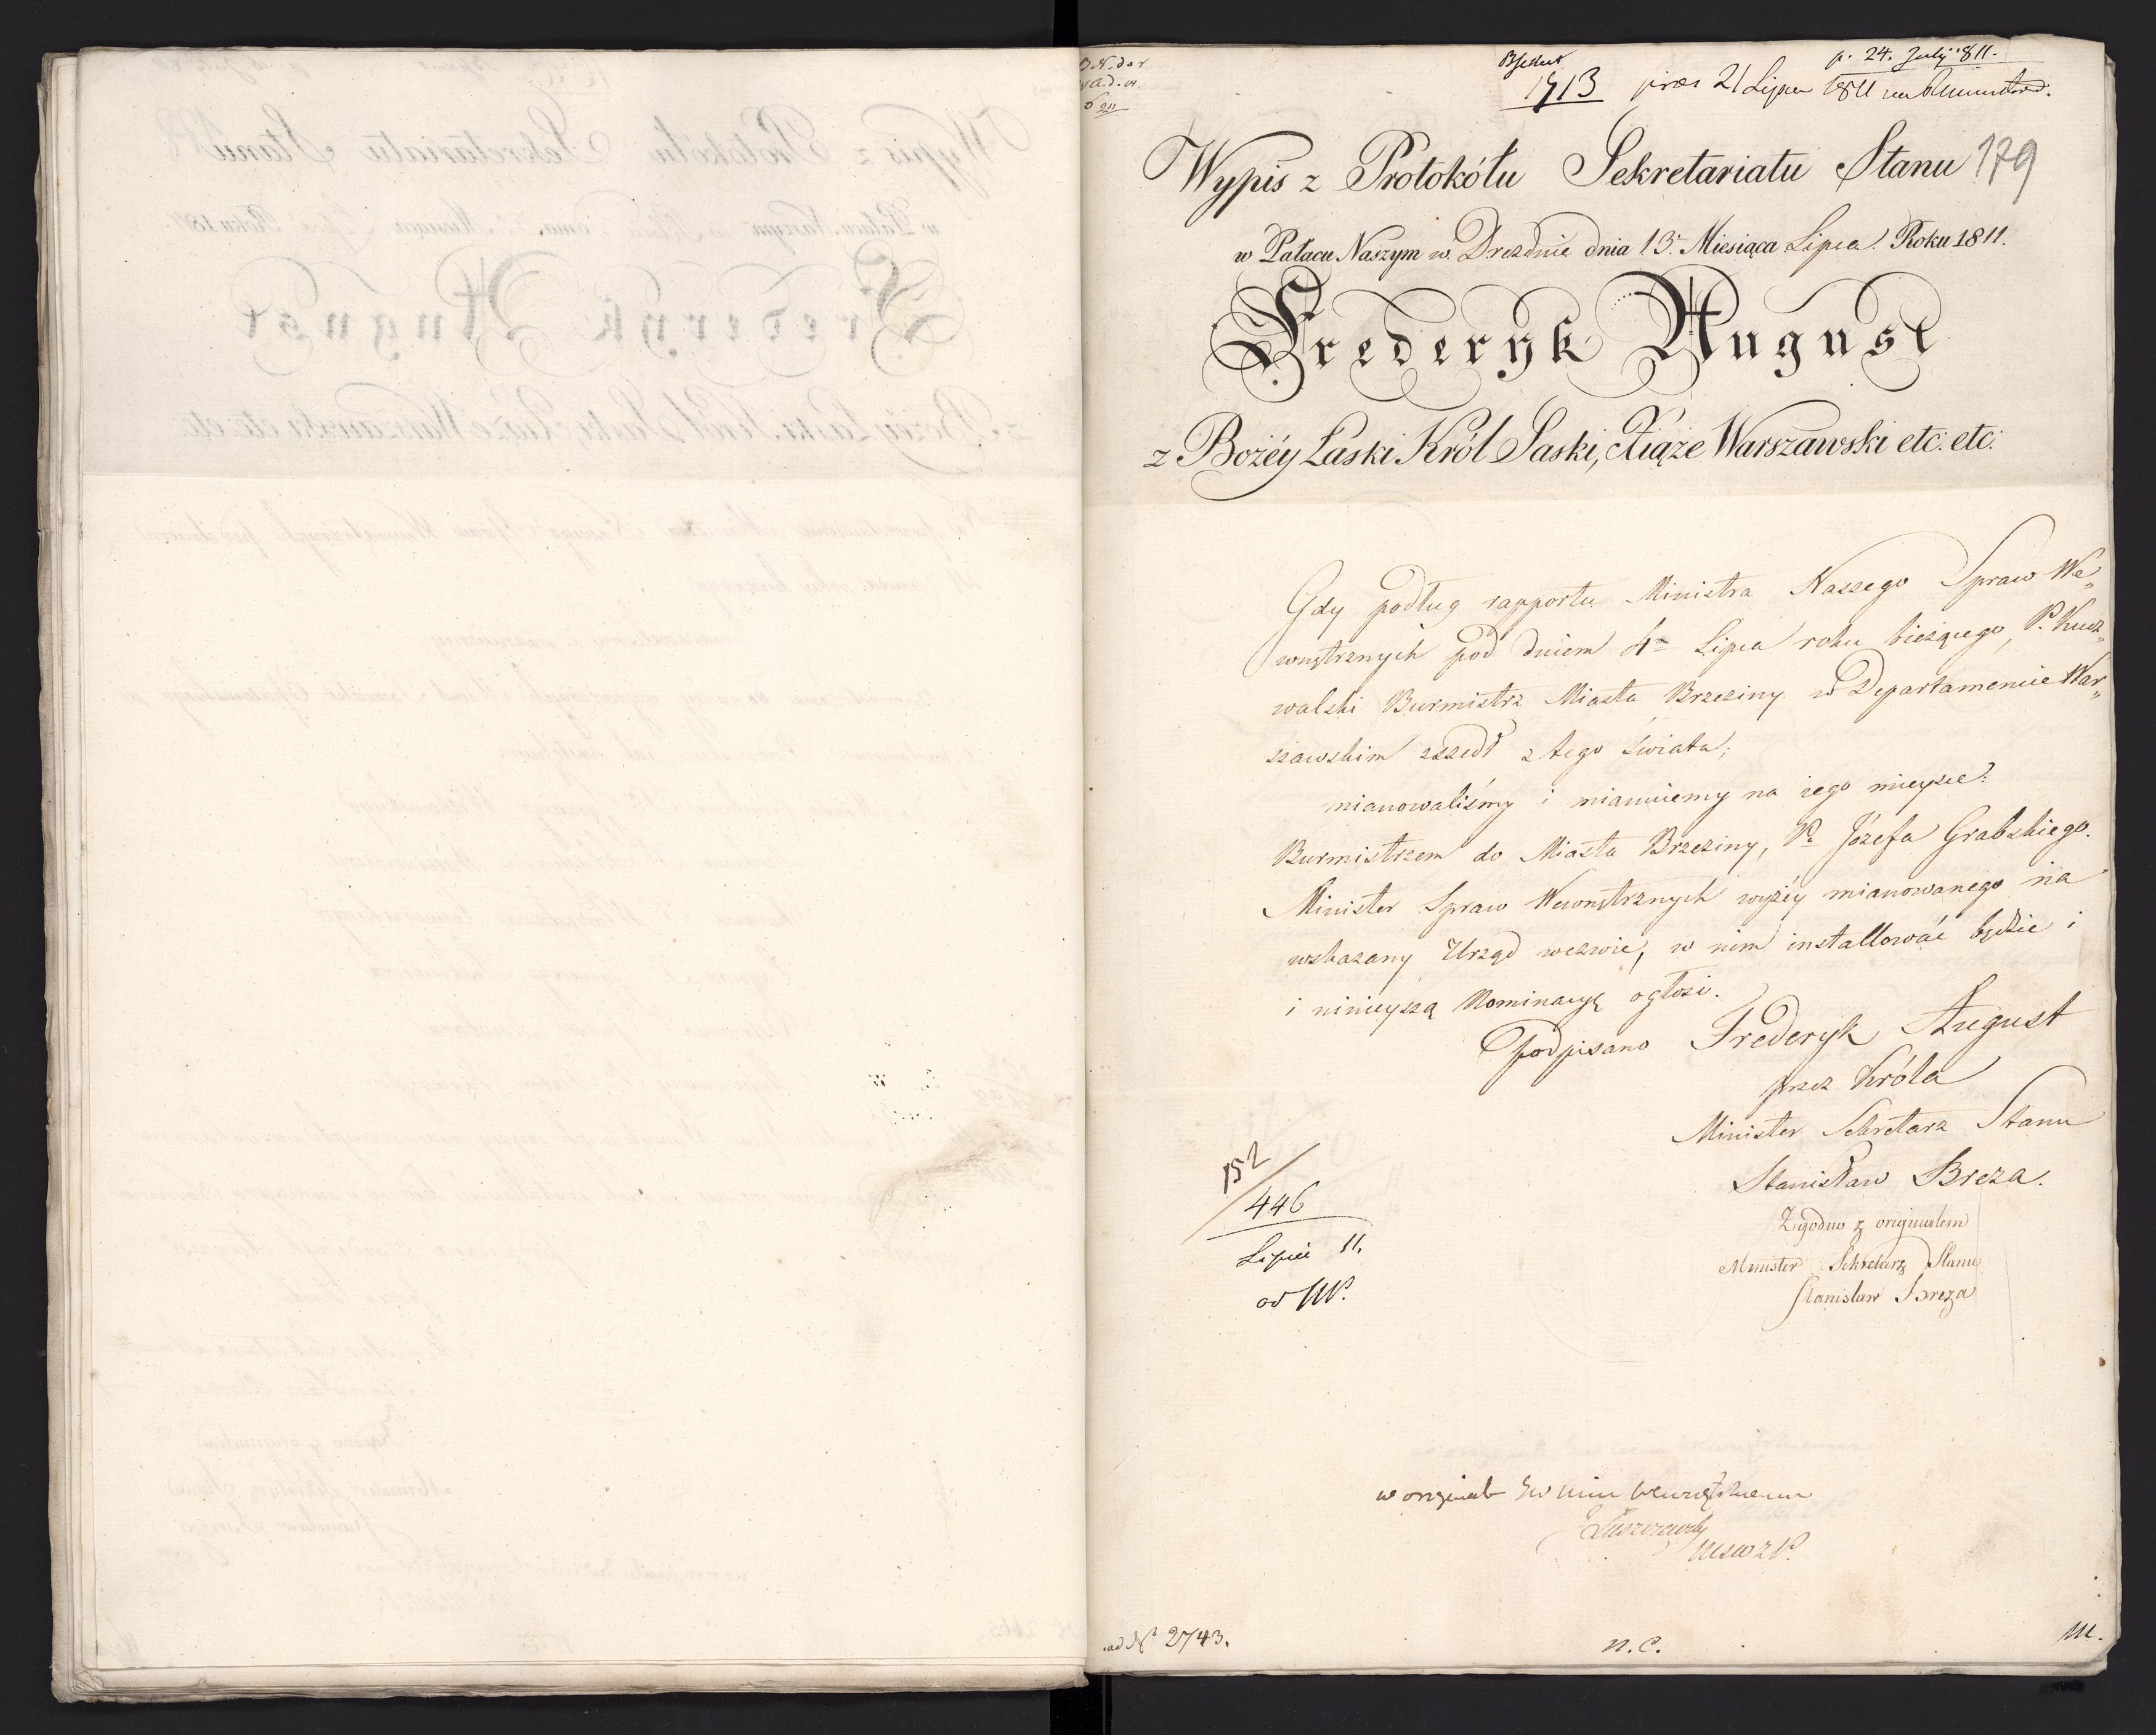 1713 pres 21 Lipca 1811
p. 24. July 811.
179
Wypis z Protokółu Sekretariatu Stanu
w Pałacu Naszym w Dreznie dnia 13. Miesiąca Lipca Roku 1811.
Frederyk August
z Bożéy Łaski Król Saski, Xiąże Warszawski etc: etc:
Gdy podług rapportu Ministra Naszego Spraw We„
wnętrznych pod dniem 4m Lipca roku bieżącego, P. Kucz„
walski Burmistrz Miasta Brzeziny w Departamencie War„
szawskim zszedł z tego świata;
mianowaliśmy i mianuiemy na iego mieysce:
Burmistrzem do Miasta Brzeziny, P. Józefa Grabskiego.
Minister Spraw Wewnętrznych wyżéy mianowanego na
wskazany Urząd wezwie, w nim installować będzie i
i ninieyszą Nominacyę ogłosi.
Podpisano Frederyk August
przez Króla
Minister Sekretarz Stanu
Stanisław Breza.
Zgodno z originałem
Minister Sekretarz Stanu
Stanisław Breza
152
446
Lipiec 11.
od
w originale
Łuszczewski
ad No 2743.
n. C.
M.